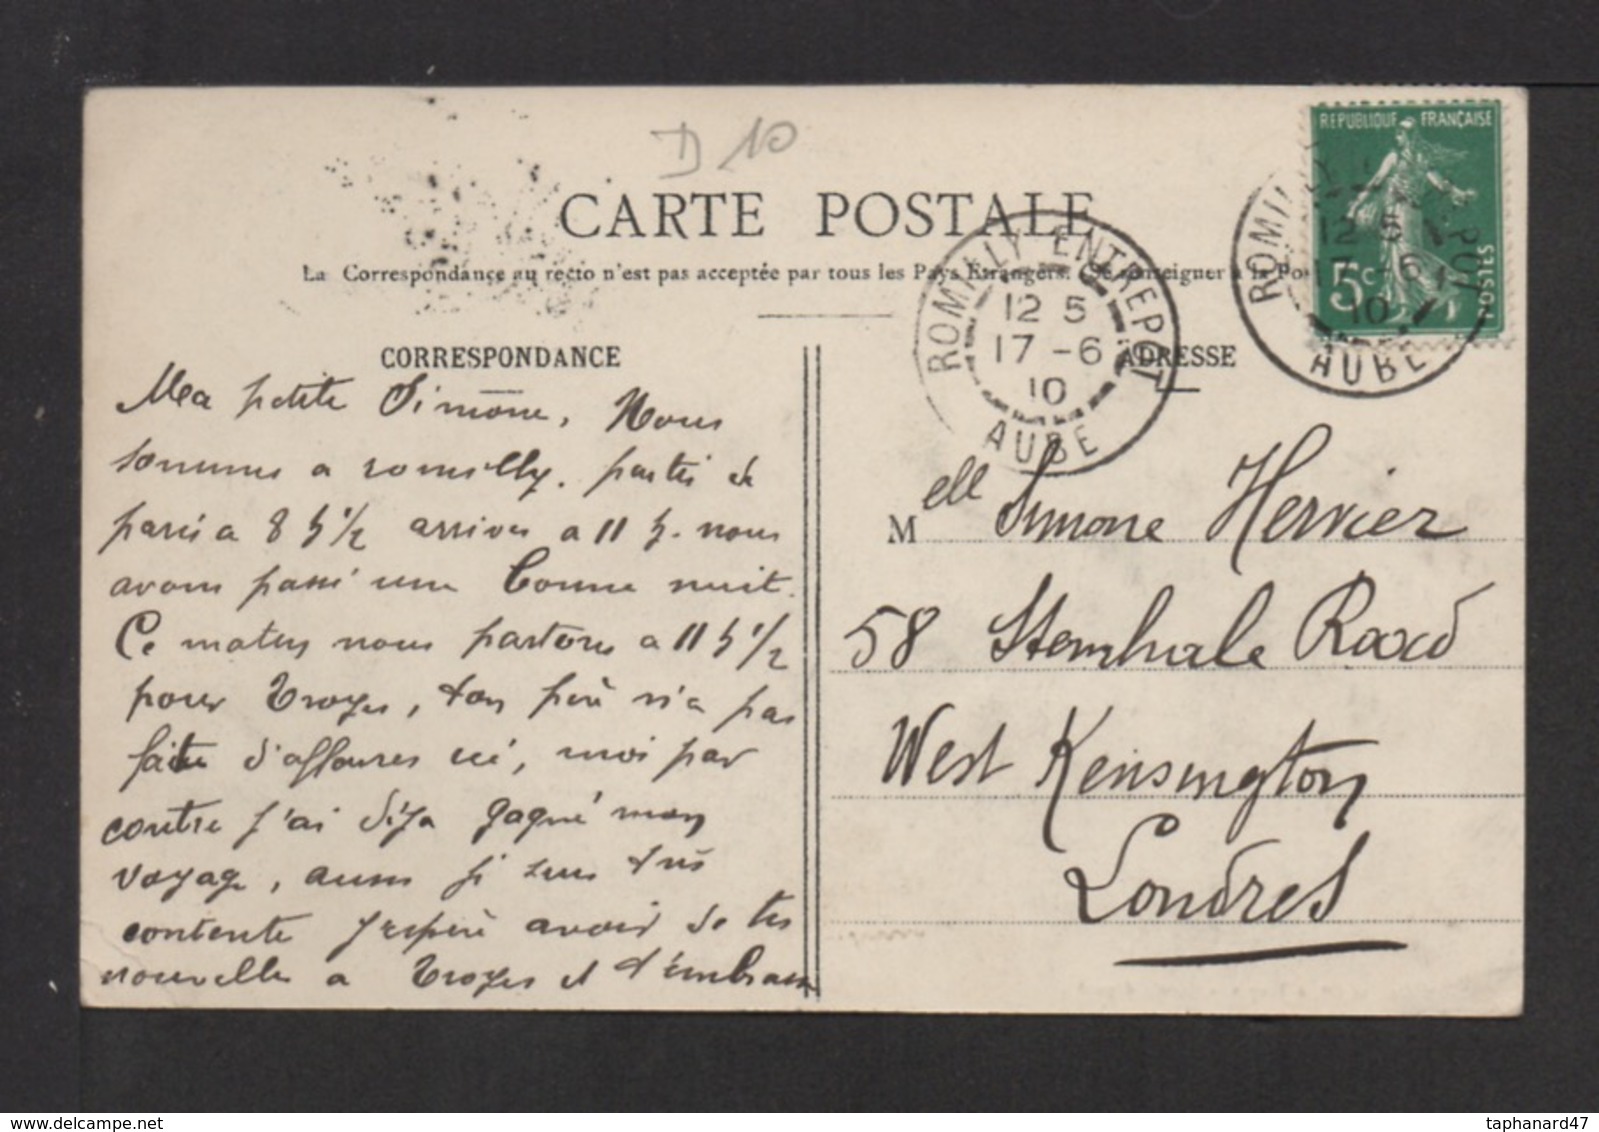 D 10
CARTE POSTALE
La Correspondance au recto n'est pas acceptée par tous les Pays Etrangers. (Se renseigner à la Pos
REPUBLIQUE FRANÇAISE
5c
POSTES
ROMILLY-ENTREPOT
12 5
17 -6
10
AUBE
ROMILLY ENTREPOT
12 5
17 -6
10
AUBE
CORRESPONDANCE
ADRESSE
Ma petite Simone, Nous
sommes a romilly. partis de
paris a 8 h ½ arrives a 11 h. nous
avons passé une bonne nuit.
Ce matin nous partons a 11 h ½
pour Troyes, ton père n'a pas
faite d'affaires ici, moi par
contre j'ai déja gagné mon
voyage, aussi je suis très
contente j'espère avoir de tes
nouvelle a Troyes et t'embrasse
Melle Simone Hervier
58 Sternhale Road
West Kensington
Londres
taphanard47